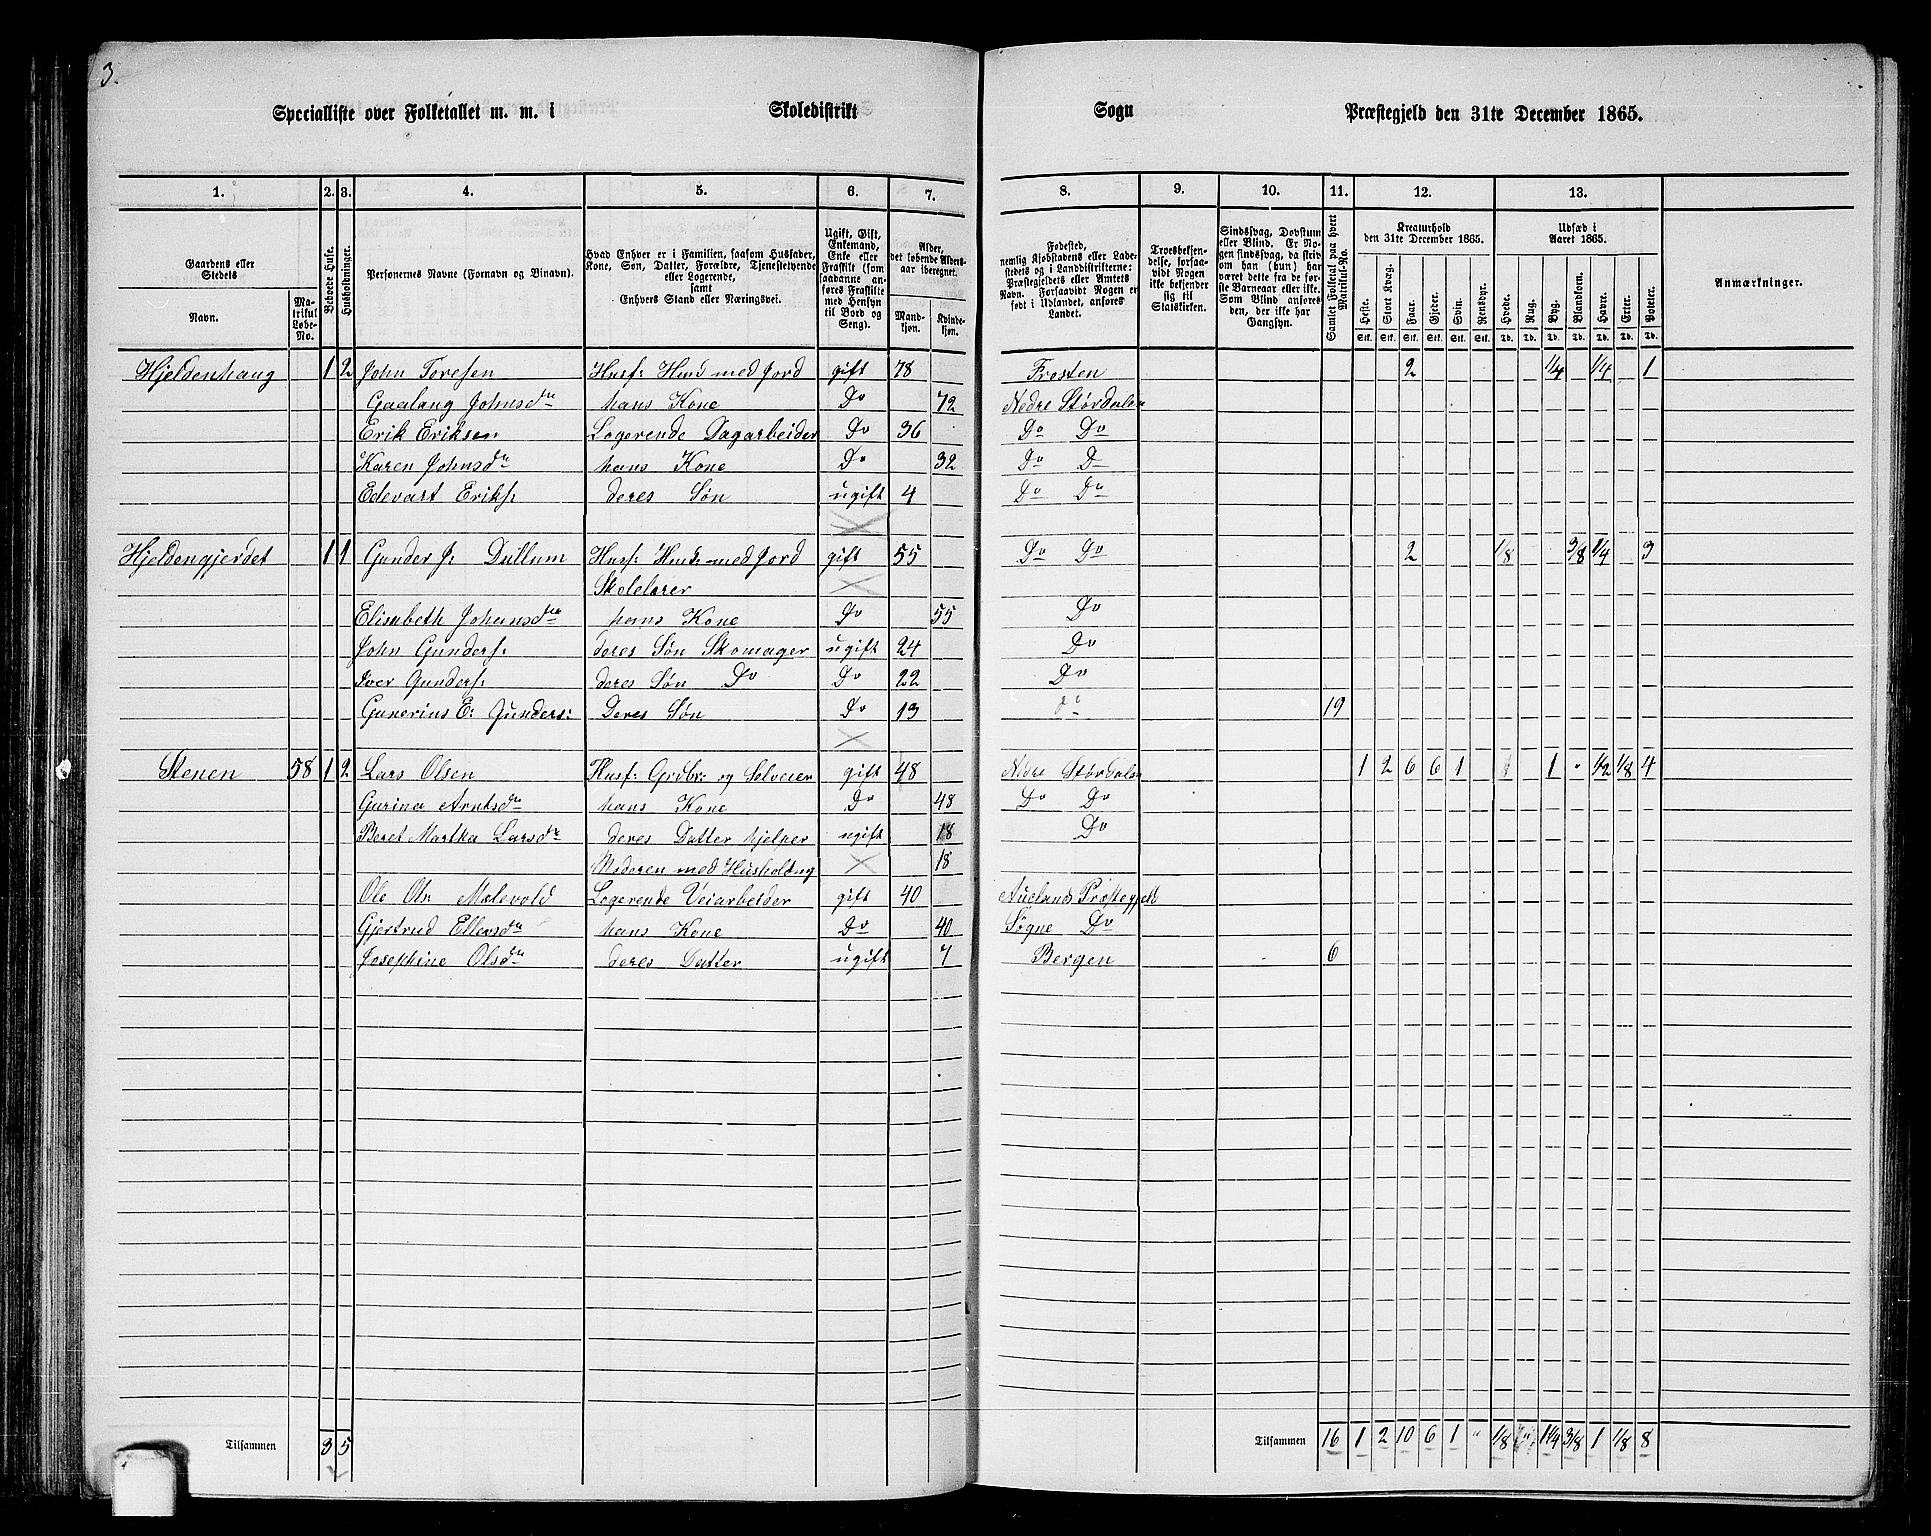 3.
Specialliste over Folketallet m. m. i Skoledistrikt Sogn Præstegjeld den 31te December 1865.
1. 2. 3. 4. 5. 6. 7. 8. 9. 10. 11. 12. 13.
Gaardens eller Stedets
Navn.
Matrikul Løbe-No.
Beboede Huse.
Husholdninger.
Personernes Navne (Fornavn og Binavn).
Hvad Enhver er i Familien, saasom Husfader, Kone, Søn, Datter, Forældre, Tjenestetyende eller Logerende, samt Enhvers Stand eller Næringsvei.
Ugift, Gift, Enkemand, Enke eller Fraskilt (som saadanne anføres Fraskilte med Hensyn til Bord og Seng).
Alder, det løbende Aldersaar iberegnet.
Mandkjøn.
Kvindekjøn.
Fødested, nemlig Kjøbstadens eller Ladestedets og i Landdistrikterne: Præstegjeldets eller Amtets Navn. Forsaavidt Nogen er født i Udlandet, anføres Landet.
Troesbekjendelse, forsaavidt Nogen ikke bekjender sig til Statskirken.
Sindssvag, Døvstum eller Blind. Er Nogen sindssvag, da skriv om han (hun) har været dette fra de første Barneaar eller ikke. Som Blind anføres den, der ikke har Gangsyn.
Samlet Folketal paa hvert Matrikul-No.
Kreaturhold den 31te December 1865.
Heste. Stort Kvæg. Faar. Gjeder. Svin. Rensdyr.
Stk. Stk. Stk. Stk. Stk. Stk.
Udsæd i Aaret 1865.
Hvede. Rug. Byg. Blandkorn. Havre. Erter. Poteter.
Td. Td. Td. Td. Td. Td. Td.
Anmærkninger.
Hjeldenhaug 1 2 John Toresen Husf: Hmd med Jord gift 78 Frosten 2 1/4 1/4 1
Gaalaug Johnsdtr hans Kone Do 72 Nedre Størdalen
Erik Eriksen Logerende Dagarbeider Do 36 Do Do
Karen Johnsdr hans Kone Do 32 Do D
Edevart Eriks: deres Søn ugift 4 Do Do
Hjeldengjerdet 1 1 Gunder J: Dullum Husf: Hmd: med Jord gift 55 Do Do 2 1/8 3/8 1/4 3
Skolelærer
Elisabeth Johansdtr hans Kone Do 55 Do
John Gunders: deres Søn Skomager ugift 24 Do
Iver Gunders: deres Søn Do Do 22 Do
Gunerius E: Gunders: Deres Søn Do 13 do 19
Stenen 58 1 2 Lars Olsen Husf: Grdbr: og Selveier gift 48 Nedre Størdalen 1 2 6 6 1 1 " 1/2 1/8 4
Gurina Arntsdtr hans Kone Do 48 Do Do
Beret Martha Larsdtr deres Datter hjelper ugift 18 Do
Moderen med Husholdng 18
Ole Ols: Molevold Logerende Veiarbeider gift 40 Auelands Præstegjeld
Gjertrud Ellersdtr hans Kone Do 40 Søgne Do
Josephine Olsdtr deres Datter ugift 7 Bergen 6
Tilsammen 3 5 Tilsammen 16 1 2 10 6 1 " 1/8 " 1 1/4 3/8 1 1/8 8